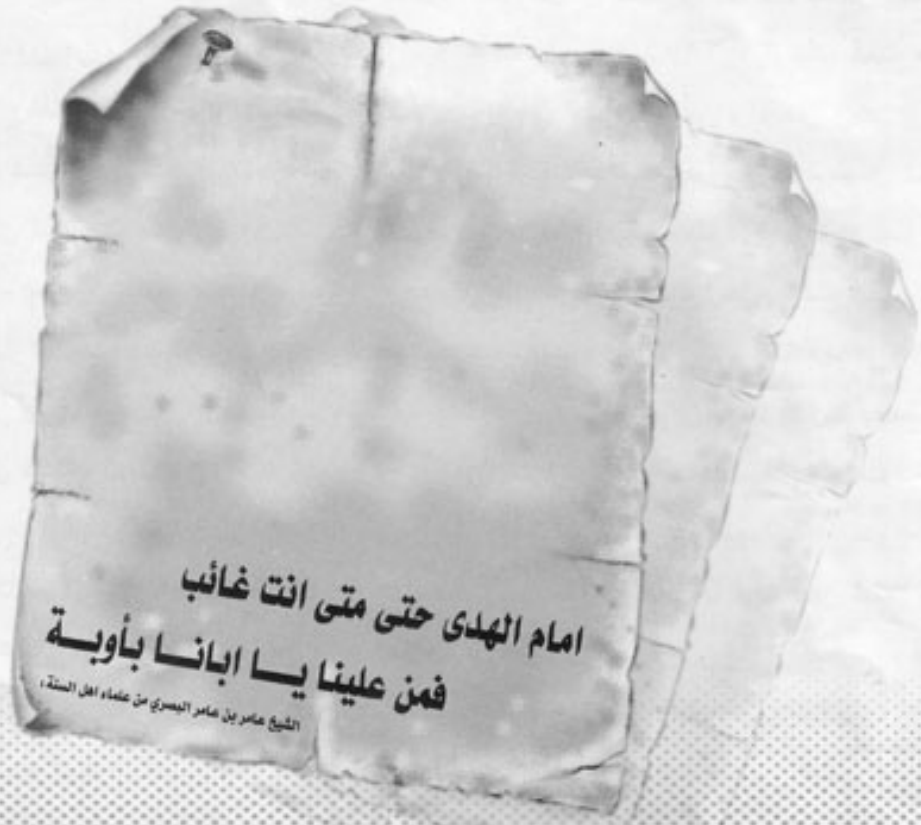 امام الهدى حتى متى انت غائب
فمن علينا يـــا ابانـــا بـأوبـــة
الشيخ عامر بن عامر البصري من علماء اهل السنة،